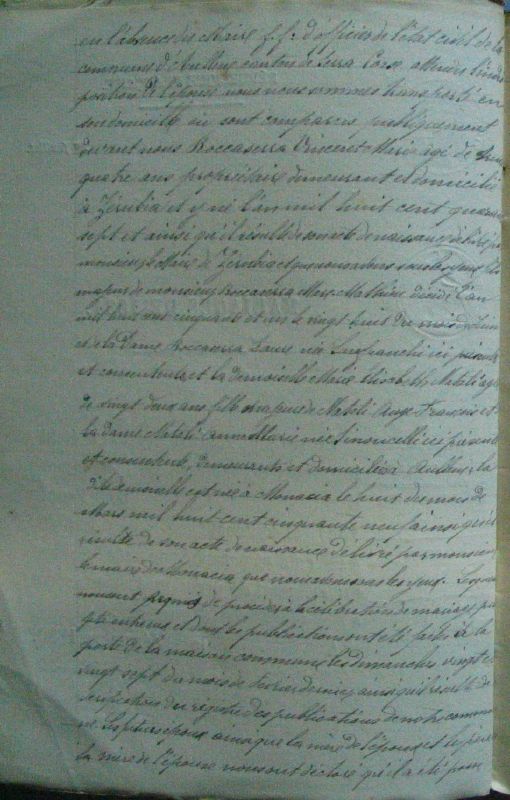 en l'absence du Maire f.f. d'officier de l'état civil de la
commune d'Aullene canton de Serra
position de l'épouse nous nous sommes transporté en
son domicile où sont comparus publiquement
devant nous Roccaserra Vincent Marie agé de
quatre ans propriétaire demeurant et domicilié
à Zerubia et y né l'an mil huit cent quarante
sept et ainsi qu'il résulte de son acte de naissance délivré par
monsieur le Maire de Zerubia et que nous avons sous les yeux fils
majeur de monsieur Roccaserra Mathieu décédé l'an
mil huit cent cinquante et un le vingt huit du mois de Juin
et de la Dame Roccaserra née Lanfranchi ici présente
et consentante, et la demoiselle Marie Elisabeth Natali agée
de vingt deux ans fille majeure de Natali Ange François et
la dame Natali Anna Marie née Simoncelli ici présents
et consentants, demeurants et domiciliés à Aullene, la
dite demoiselle est née à Monacia le huit du mois de
Mars mil huit cent cinquante neuf ainsi qu'il
résulte de son acte de naissance délivré par monsieur
le maire de Monacia que nous avons sous les yeux. Lesquels
nous ont requis de procéder à la célébration du mariage projeté
entre eux et dont les publications ont été faites à la
porte de la maison commune les dimanches vingt et
vingt sept du mois de fevrier dernier, ainsi qu'il résulte de
l'inspection du registre des publications de notre commune
Les futurs époux ainsi que la mère de l'époux et le père
la mère de l'épouse nous ont déclaré qu'il a été passé